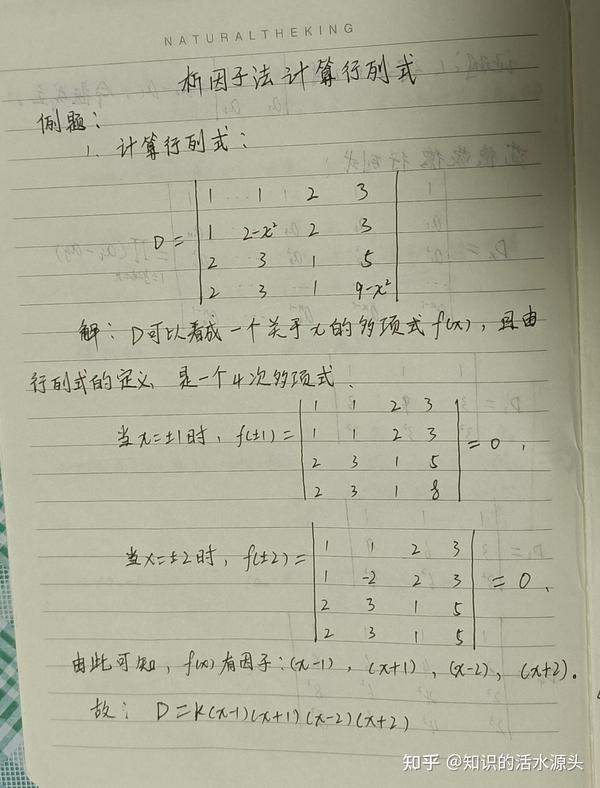 NATURALTHEKING
析因子法计算行列式
例题:
1. 计算行列式:
D = | 1 1 2 3 |
| 1 2-x² 2 3 |
| 2 3 1 5 |
| 2 3 1 9-x² |
解: D可以看成一个关于x的多项式f(x), 且由
行列式的定义, 是一个4次多项式.
当x=±1时, f(±1)= | 1 1 2 3 |
| 1 1 2 3 | = 0,
| 2 3 1 5 |
| 2 3 1 8 |
当x=±2时, f(±2)= | 1 1 2 3 |
| 1 -2 2 3 | = 0.
| 2 3 1 5 |
| 2 3 1 5 |
由此可知, f(x)有因子: (x-1), (x+1), (x-2), (x+2).
故: D=K(x-1)(x+1)(x-2)(x+2)
知乎 @知识的活水源头